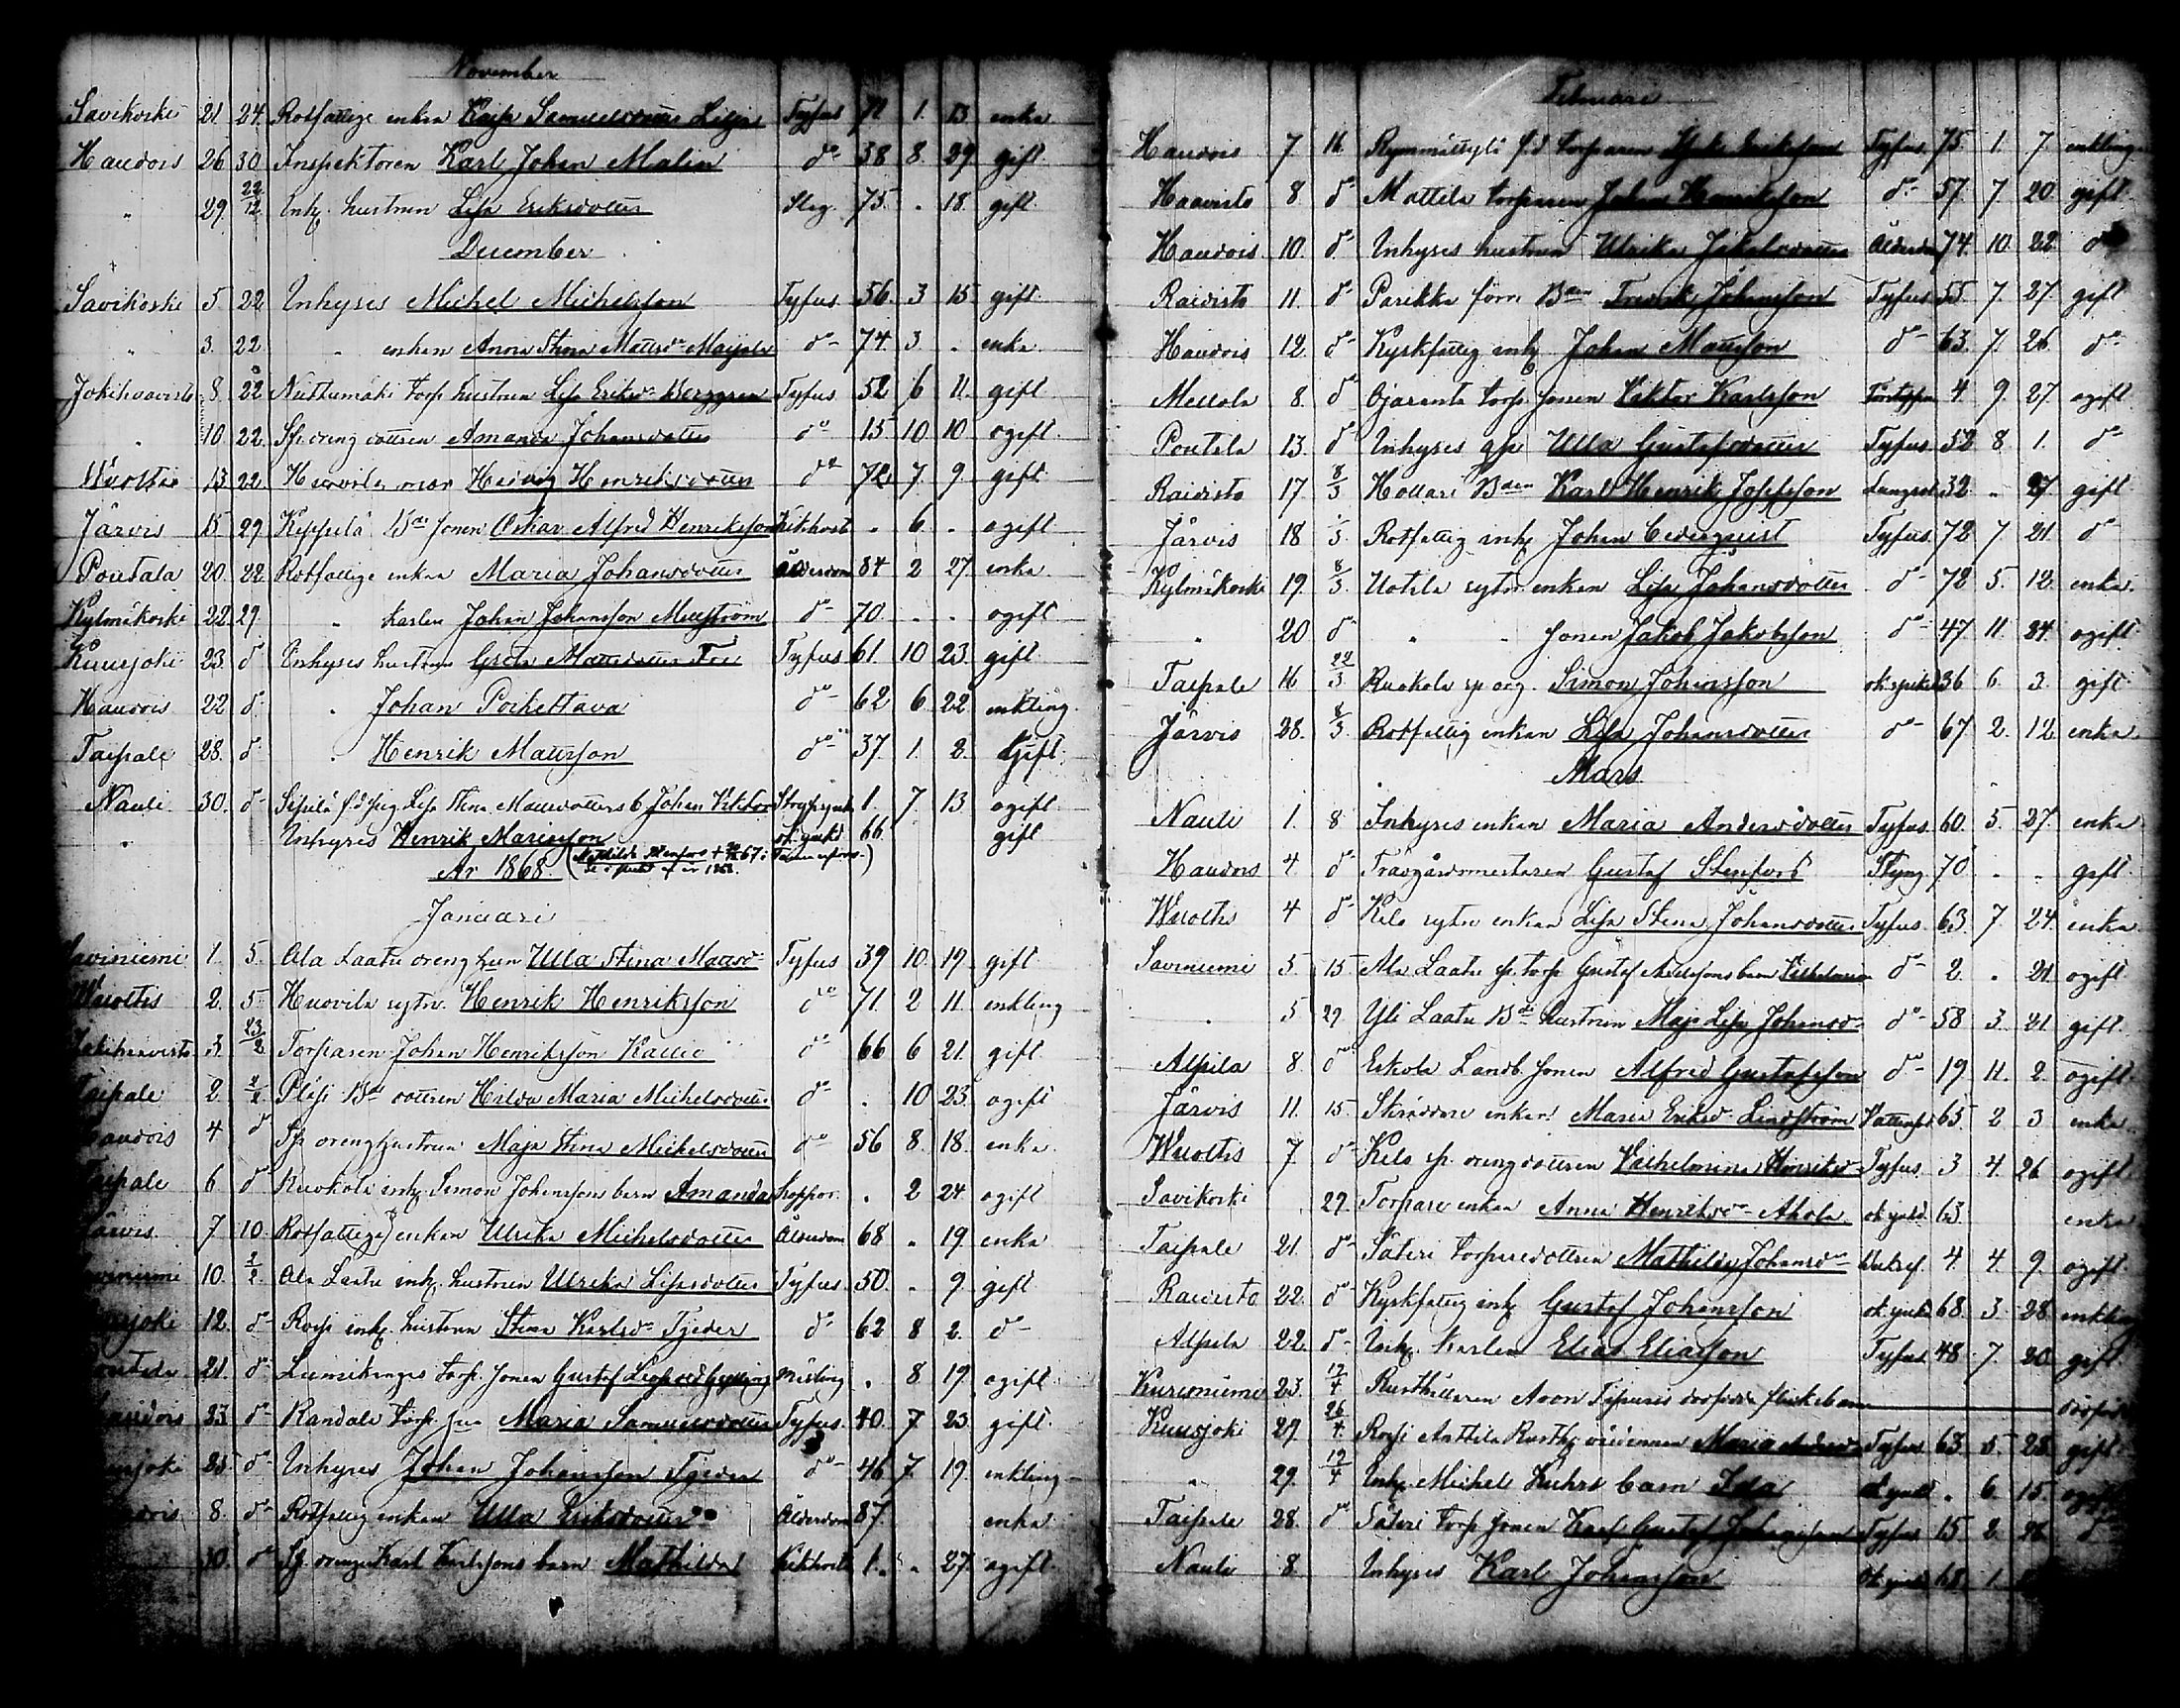 November
Savikoski 21. 24. Rotfattige enkan Kajsa Samuelsdotter Lilja Tyfus 72 1. 13 enka
Haudois 26 30 Inspektoren Karl Johan Malin do 38 8. 29 gift
" 29. 22/12 Inh. hustrun Lisa Eriksdotter Slag 75 . 18. gift
December
Savikoski 5. 22 Inhyses Michel Michelsson Tyfus 56 3 15 gift
" 3. 22 " enkan Anna Stina Mattsdr Maijala do 74 3 . enka
Jokihaavisto 8. 22 torp hustrun Lisa Eriksdr Berggren Tyfus 52 6 11. gift
" 10 22. Sp. dreng dottren Amanda Johansdotter do 15 10 10 ogift
Wuoltis 13 22. Huovila mor Hedvig Henriksdotter do 72 7. 9 gift
Järvis 15. 29 Keppilä Bds sonen Oskar Alfred Henriksson Kikhosta . 6 . ogift
Poutala 20. 22 Rotfattige enkan Maria Johansdotter Ålderdom 84 2 27. enka
Kylmäkoski 22. 29 " karlen Johan Johansson Mellström do 70. . . ogift
Kuurjoki 23. do Inhyses hustrun Greta Mattsdotter Tyfus 61. 10 23. gift
Haudois 22 do " Johan Poikettava do 62 6 22 enkling
Taipale 28. do " Henrik Mattsson do 37 1. 2. Gift
Nauli 30. do Seppilä f.d. pig. Lisa Stina Mattsdotters b. Johan Viktor Strypsjuka 1. 7 13 ogift
" Inhyses Henrik Mariasson ok. sjukd 66 gift
År 1868. (Mathilda Stenfors + 67 i Tammerfors.
se i slutet af år 1868.)
Januari
Saviniemi 1. 5. Ala Laatu dreng hun Ulla Stina Mattsdr Tyfus 39 10. 19. gift
Wuoltis 2. 5 Huovila sytn. Henrik Henriksson do 71. 2 11. enkling
Jokihaavisto 3. 23/2 Torparen Johan Henriksson Kallio do 66 6 21. gift
Taipale 2 2/2 Bds dottren Hilda Maria Michelsdotter do . 10 23. ogift
Haudois 4 do Sp. drenghustrun Maja Stina Michelsdotter do 56 8. 18. enka
Taipale 6 do Ruokola inh. Simon Johanssons barn Amanda Koppor . 2 24. ogift
Järvis 7 10 Rotfattige enkan Ulrika Michelsdotter Ålderdom 68 . 19. enka
Saviniemi 10. 2/2. Ala Laatu inh. hustrun Ulrika Lisasdotter Tyfus. 50. . 9. gift
Kuurjoki 12. do Rossi inh. hustrun Stina Karlsdr Tjeder do 62 8 2. do
Poutala 21. do torp. sonen Gustaf Leopold Gylling Mäsling . 8 19. ogift
Haudois 23. do Randala torp. hun Maria Samuelsdotter Tyfus. 40. 7. 23. gift
Kuurjoki 25. do Inhyses Johan Johansson Tjeder do 46 7. 19. enkling
Haudois 8. do Rotfattig enkan Ulla Eriksdotter Ålderdom 87. enka
30. do Sp. drenge Karl Karlssons barn Mathilda Kikhosta 1. . 27. ogift
Februari
Haudois 7 16. Rymmättylä f.d. torparen Erik Eriksson Tyfus 75 1. 7. enkling
Haavisto 8. do Mattila torparen Johan Henriksson do 57. 7 20. gift
Haudois 10. do Inhyses hustrun Ulrika Jakobsdotter Ålderdom 74. 10. 22. do
Raivisto 11. do Parikka förre Bden Fredrik Johansson Tyfus 55. 7. 27. gift
Haudois 12. do Kyrkfattig inh. Johan Mattsson do 63. 7. 26. do
Mellola 8. do Ojaranta torp. sonen Viktor Karlsson 4. 9. 27. ogift
Poutala 13. do Inhyses qp. Ulla Gustafsdotter Tyfus. 52 8 1. do
Raivisto 17. 8/3 Hollari Bden Karl Henrik Josefsson Lungsot 32. . 27. gift
Järvis 18 /3. Rotfattig inh. Johan Cederqvist Tyfus 72 7 21. do
Kylmäkoski 19. 8/3. Uotila sytn. enkan Lisa Johansdotter do 78 5. 12. enka.
" 20 do " sonen Jakob Jakobsson do 47. 11. 24. ogift
Taipale 16 22/3. Ruokola sp. drg. Simon Johansson ok. sjukd 36 6. 3. gift.
Järvis 28. 8/3. Rotfattig enkan Lisa Johansdotter do 67 2. 12. enka
Mars
Nauli 1. 8 Inhyses enkan Maria Andersdotter Tyfus. 60. 5. 27. enka
Haudois 4 do Trädgårdsmästaren Gustaf Stenfors Styng 70 . . gift.
Wuoltis 4 do Kilo sytn. enkan Lisa Stina Johansdotter Tyfus. 63. 7 24. enka
Saviniemi 5 15 Ala Laatu sp. torp. Gustaf barn Vilhelmina do 2. . 21. ogift
" 5 29. Yli Laatu Bds hustrun Maja Lisa Johansdr do 58 3. 21. gift
Alpila 8. do Eskola Landb. sonen Alfred Gustafsson do 19 11. 2. ogift.
Järvis 11. 15. Skräddare enkan Maria Eriksdr Lindström Vattusot 65. 2 3 enka.
Wuoltis 7. do Kilo sp. drengdottren Vilhelmina Henriksdr Tyfus. 3 4. 26 ogift
Savikoski 29. Torpare enkan Anna Henriksdr Ahola ok. sjukd. 63. enka
Taipale 21. do Säteri torparedottren Mathilda Johansdr 4. 4. 9. ogift
Raivisto 22. do Kyrkfattig inh. Gustaf Johansson ok. sjukd 68. 3. 28. enkling
Alpila 22. do Inh. karlen Elias Eliasson Tyfus 48. 7. 20. gift.
Kurisniemi 23. 12/4 Rusthållaren Aron dödfödda flickebarn dödfödd
Kuurjoki 29. 26/4. Rossi Anttila Rusth. värdinnan Maria Andersdr Tyfus 63. 5. 28. gift
" 29. 12/4 Inh. Michel barn Ida ok. sjukd . 6. 15. ogift
Taipale 28. do Säteri torp. sonen Karl Gustaf Johansson Tyfus 15. 2. 26. do
Nauli 8 Inhyses Karl Johansson ok. sjukd 68. 1.